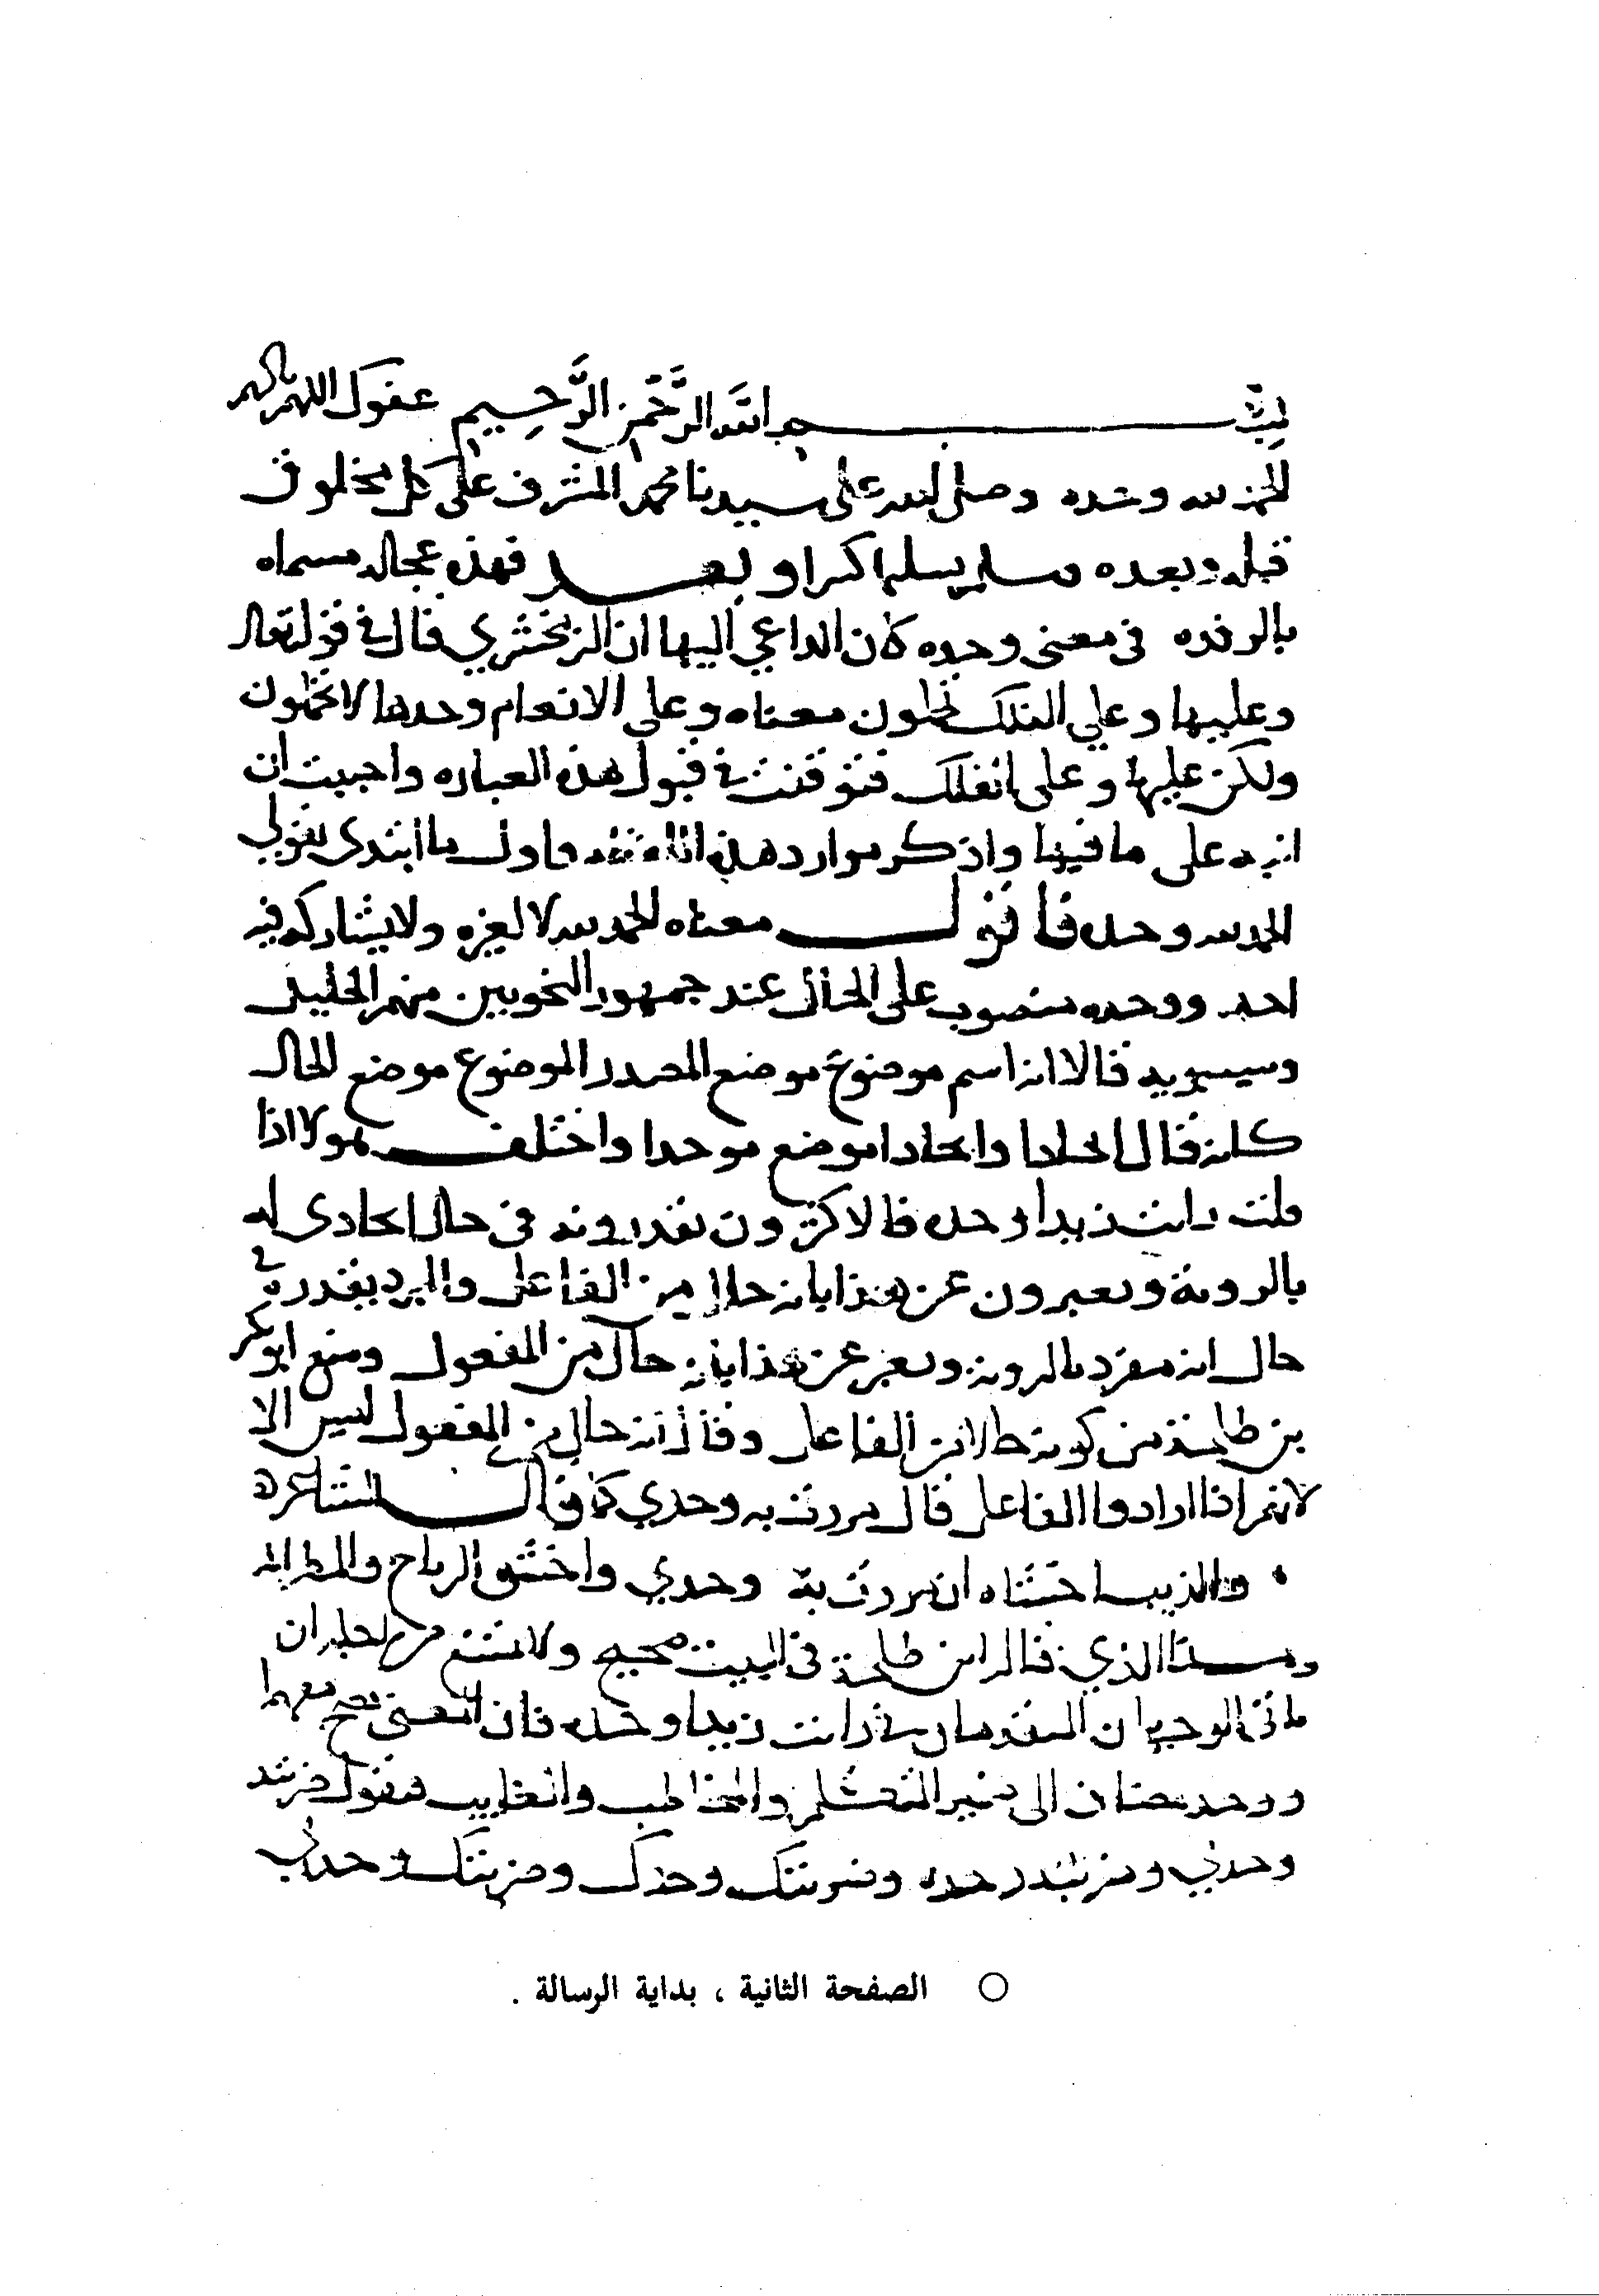 بسم الله الرَّحْمَن الرَّحِيم عفوك اللهم يا كريم
الحمد لله وحده وصلى الله على سيدنا محمد المشرف على كل مخلوق
قبله وبعده وسلم تسليما كثيرا وبعد فهذه عجالة مسماه
بالرفده في معنى وحده كان الداعي اليها ان الزمخشري قال في قوله تعالى
وعليها وعلي الفلك تحملون معناه وعلى الانعام وحدها لا تحملون
ولكن عليها وعلى الفلك فتوقفت في قبول هذه العباره واحببت ان
انبه على ما فيها واذكر موارد هذه اللفظه فاول ما ابتدى بقولي
الحمد لله وحده فاقول معناه الحمد لله لا لغيره ولا يشاركه فيه
احد ووحده منصوب على الحال عند جمهور النحويين منهم الخليل
وسيبويه قالا انه اسم موضوع موضع المصدر الموضوع موضع الحال
كانه قال ايحادا وايحادا موضع موحدا واختلف هولا اذا
قلت رايت زيدا وحده فالاكثرون يقدرونه في حال ايحادى له
بالروية ويعبرون عن هذا بانه حال من الفاعل والمبرد يقدره في
حال انه مفرد بالروية ويعبر عن هذا بانه حال من المفعول ومنع ابو بكر
بن طلحة من كونه حالا من الفاعل وقال انه حال من المفعول ليس الا
لانهم اذا ارادوا الفاعل قال مررت به وحدي كما قال الشاعر
والذيب اخشاه ان مررت به وحدي واخشى الرياح والمطرا
وهذا الذي قاله ابن طلحة في البيت صحيح ولا يمتنع من اجله ان
ياتى الوجهان المتقدمان في رايت زيدا وحده فان المعنى يصح معهما
ووحد يضاف الى ضمير المتكلم والمخاطب والغايب فتقول ضربته
وحدي وضربته وحده وضربتك وحدك وضربتك وحدي
○ الصفحة الثانية ، بداية الرسالة .